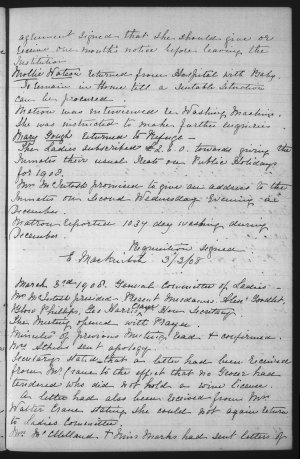 agreement signed that she should give or
receive one month's notice before leaving the
Institution
Mollie Watson returned from Hospital with Baby.
To remain in Home till a suitable Situation
can be procured.
Matron was interviewed re Washing Machine.
She was instructed to make further enquiries
Mary Gough returned to Refuge -
The Ladies subscribed £2.6.0. towards giving the
Inmates their usual treats on Public Holidays
for 1908.
Mrs McIntosh promised to give an address to the
Inmates on Second Wednesday Evening in
December.
Matron reported 1034 day washing during
December
Requisition signed
E Mackintosh 3/3/08
March 3rd 1908. General Committee of Ladies -
Mrs McIntosh presided. Present Mesdames Goodlet,
Phillips, Geo Harris, Hon Secretary
The Meeting opened with Prayer.
Minutes of previous Meeting read & confirmed.
Mrs sent apology
Secretary stated that a letter had been received
from Mr Crane to the effect that no Grocer had
tendered who did not hold a wine licence.
A letter had also been received from Mrs
Walter Crane stating she could not again return
to Ladies Committee
Mrs McClelland & Miss Marks had sent letters of